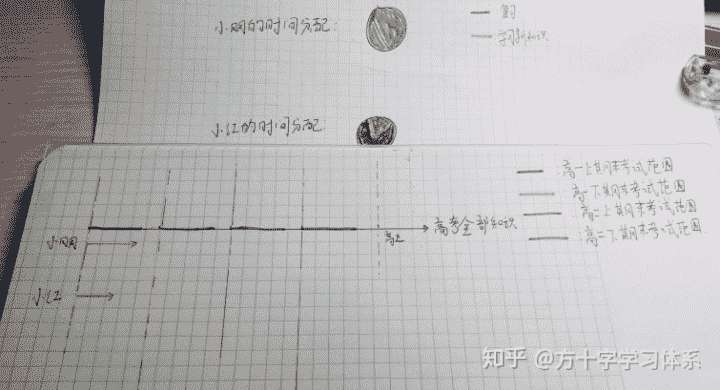 小明的时间分配:
复习
学习新知识
小红的时间分配:
高一上期末考试范围
高一下期末考试范围
高二上期末考试范围
高二下期末考试范围
高三
高考全部知识
小明
小红
知乎 @方十字学习体系